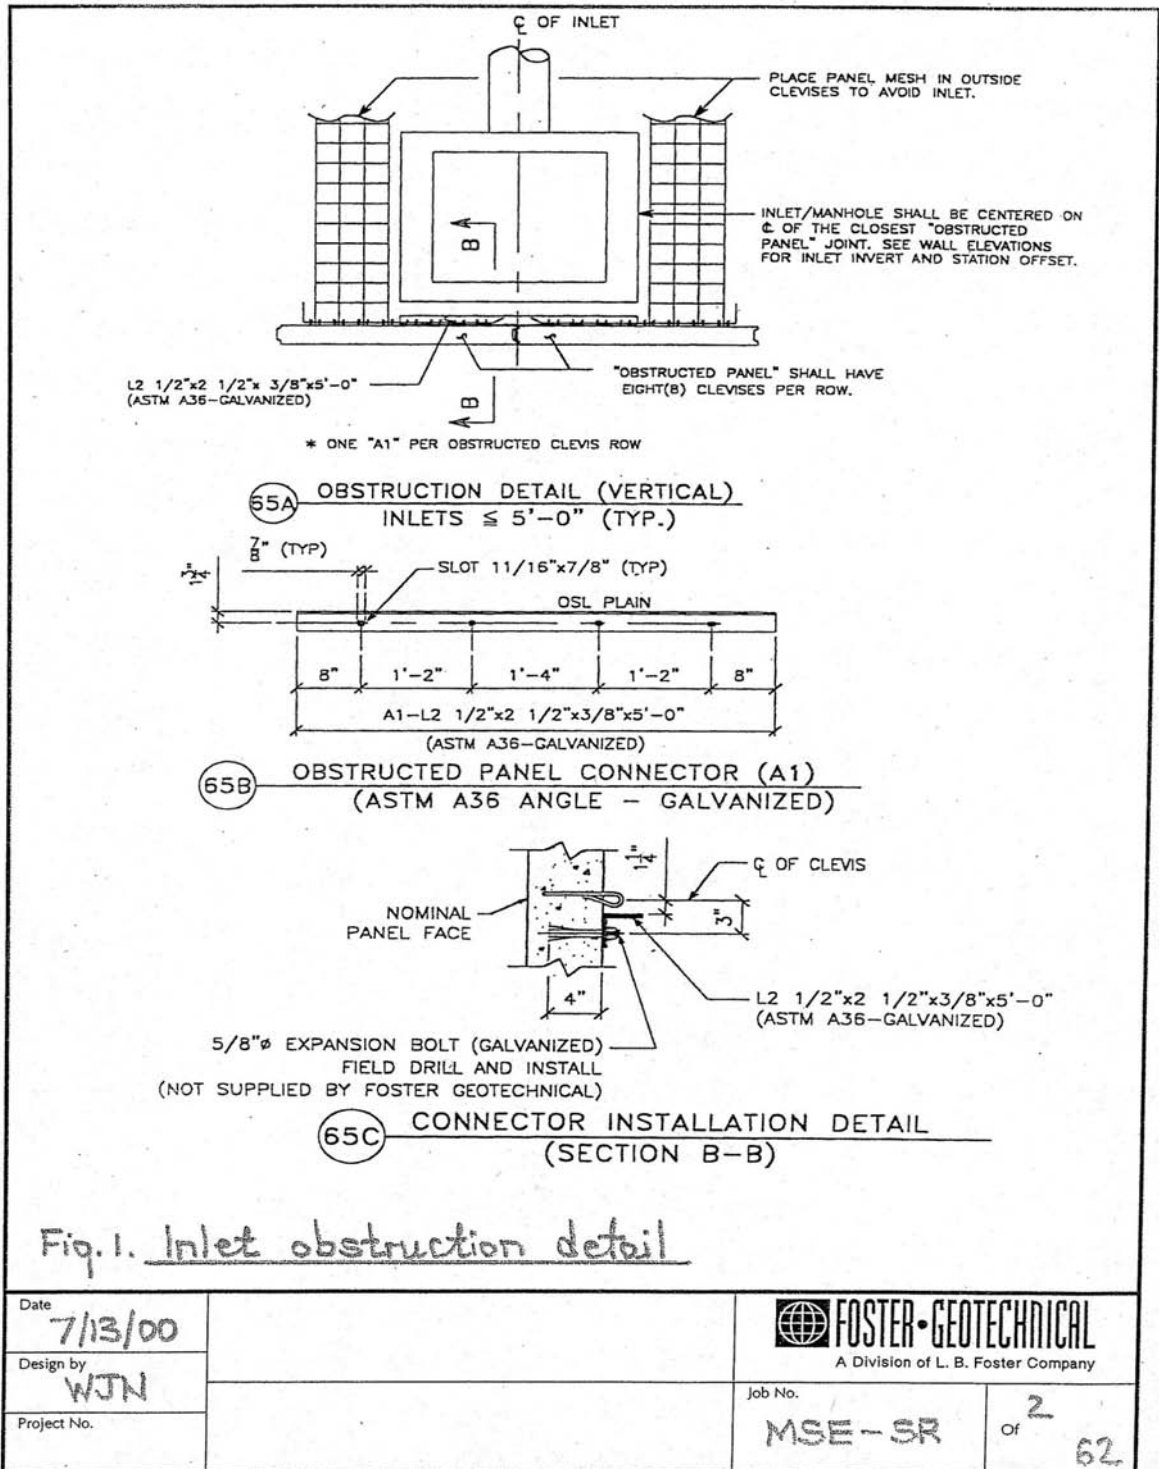 ℄ OF INLET
PLACE PANEL MESH IN OUTSIDE
CLEVISES TO AVOID INLET.
INLET/MANHOLE SHALL BE CENTERED ON
℄ OF THE CLOSEST "OBSTRUCTED
PANEL" JOINT. SEE WALL ELEVATIONS
FOR INLET INVERT AND STATION OFFSET.
B
L2 1/2"x2 1/2"x 3/8"x5'-0"
(ASTM A36-GALVANIZED)
"OBSTRUCTED PANEL" SHALL HAVE
EIGHT(8) CLEVISES PER ROW.
B
* ONE "A1" PER OBSTRUCTED CLEVIS ROW
65A
OBSTRUCTION DETAIL (VERTICAL)
INLETS ≤ 5'-0" (TYP.)
7/8" (TYP)
1 3/4"
SLOT 11/16"x7/8" (TYP)
OSL PLAIN
8" 1'-2" 1'-4" 1'-2" 8"
A1-L2 1/2"x2 1/2"x3/8"x5'-0"
(ASTM A36-GALVANIZED)
65B
OBSTRUCTED PANEL CONNECTOR (A1)
(ASTM A36 ANGLE - GALVANIZED)
1 1/4"
℄ OF CLEVIS
NOMINAL
PANEL FACE
3"
4"
L2 1/2"x2 1/2"x3/8"x5'-0"
(ASTM A36-GALVANIZED)
5/8"ø EXPANSION BOLT (GALVANIZED)
FIELD DRILL AND INSTALL
(NOT SUPPLIED BY FOSTER GEOTECHNICAL)
65C
CONNECTOR INSTALLATION DETAIL
(SECTION B-B)
Fig. 1. Inlet obstruction detail
Date
7/13/00
Design by
WJN
Project No.
FOSTER•GEOTECHNICAL
A Division of L. B. Foster Company
Job No.
MSE-SR
2
Of
62